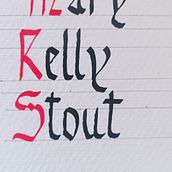 Mary
Kelly
Stout